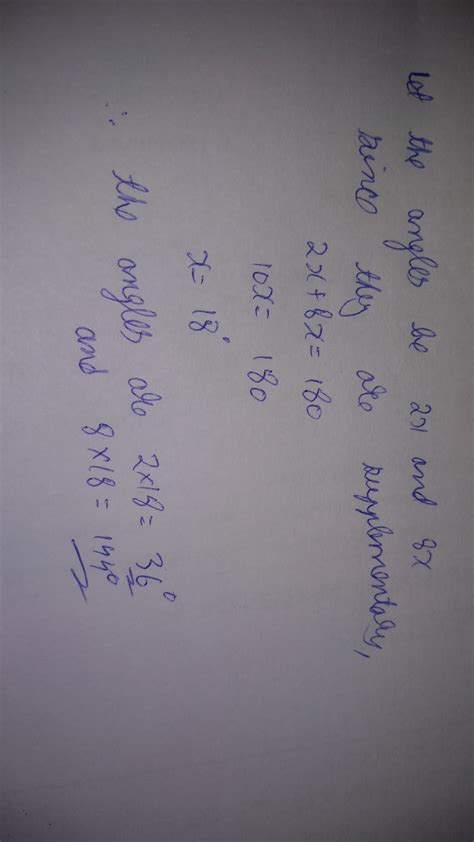 Let the angles be 2x and 8x
since they are supplementary,
2x + 8x = 180
10x = 180
x = 18°
∴ the angles are 2×18 = 36°
and 8×18 = 144°